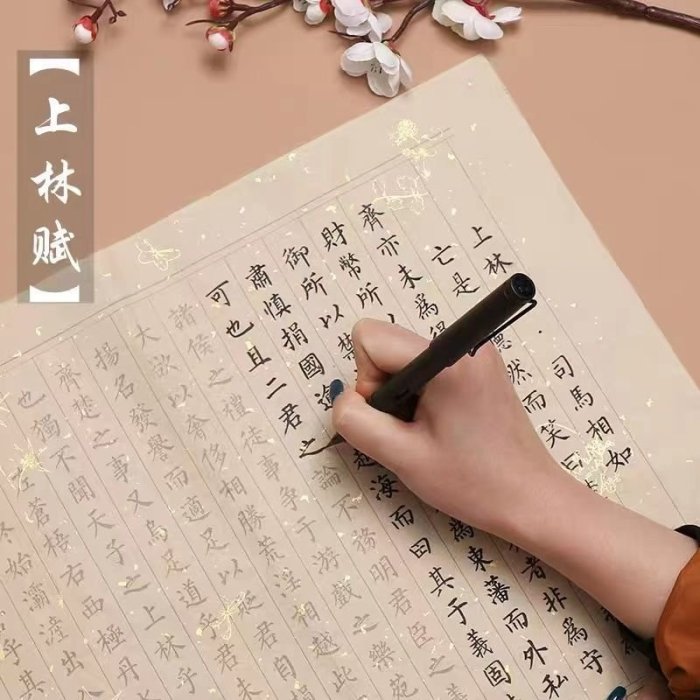 【上林赋】
上林 司馬相如
亡是 然而笑曰
齊亦未為得 者非為守
財幣所以
御所以禁 為東藩而外私
肅慎捐國 越海而田其于義固
可也且二君之論不務明君臣之
諸侯之禮徒事爭于游戲之樂苑
大欲以奢侈相勝荒淫相越此
揚名發譽而適足以 君自
齊楚之事又烏足道乎君未
也獨不聞天子之上林乎
左蒼梧右西極丹
終始灞滻出